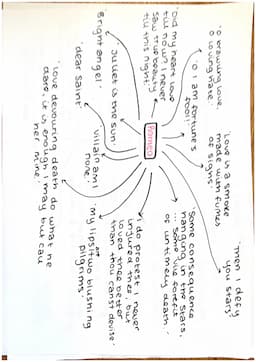 'O brawling love,
O loving hate.'
'Love is a smoke
made with fumes
of sighs'
'then I defy
you stars'
'O I am fortune's
fool!'
'Did my heart love
till now? I never
saw true beauty
till this night'
ROMEO
'Some consequence
hanging in the stars.
... some vile forefit
of untimely death.'
'I do protest I never
injured thee, but
loved thee better
than thou canst devise.'
'Juliet is the sun'
'Bright angel'
'dear saint'
'Villain am I
none.'
'My lips, two blushing
pilgrims'
'Love devouring death do what he
dare, it is enough I may but call
her mine.'